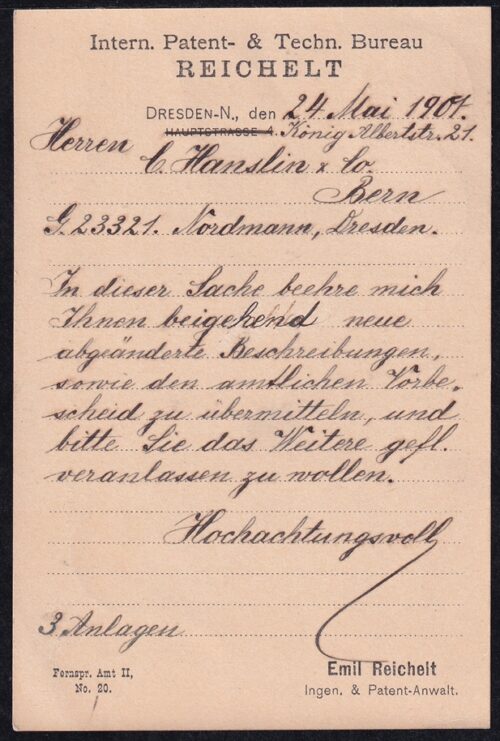 Intern. Patent- & Techn. Bureau
REICHELT
DRESDEN-N., den 24 Mai 1901.
HAUPTSTRASSE 4. König Albertstr. 21.
Herren
C. Hanslin & Co.
Bern
G. 23321. Nordmann, Dresden.
In dieser Sache beehre mich
Ihnen beigehend neue
abgeänderte Beschreibungen,
sowie den amtlichen Vorbe-
scheid zu übermitteln, und
bitte Sie das Weitere gefl.
veranlassen zu wollen.
Hochachtungsvoll
3 Anlagen
Fernspr. Amt II,
No. 20.
Emil Reichelt
Ingen. & Patent-Anwalt.